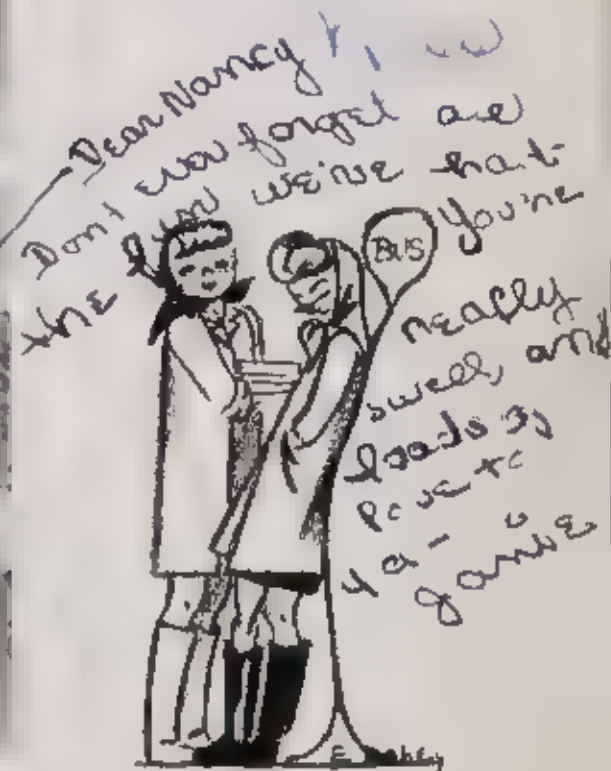 Dear Nancy
Don't ever forget all
the fun we've had.
You're
really
swell, and
loads of
love to
ya -
Janie
BUS